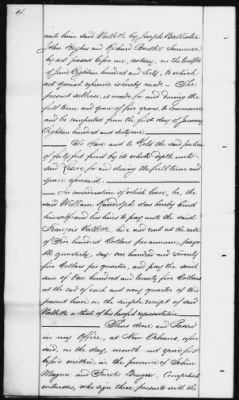 unto him said Vallette by Joseph
John Hughes and Richard
by act passed before me, notary, on the twelfth
of June Eighteen hundred and Sixty, to which
act special reference is hereby made — The
present sublease, is made for and during the
full term and space of five years, to commence
and be computed from the first day of January
Eighteen hundred and sixty one.
To Have and to Hold the said portion
of forty feet front by its whole depth unto
said Lessee for and during the full term and
space aforesaid.
In consideration of which lease, he, the
said William Randolph does hereby bind
himself and his heirs to pay unto the said
François Vallette, his and rent at the rate
of Five hundred Dollars per annum, payable
quarterly, say one hundred and twenty
five Dollars per quarter, and pay the said
sum of One hundred and twenty five Dollars
at the end of each and every quarter of the
present lease on the simple receipt of said
Vallette or that of his lawful representative.
Thus done and Passed
in my Office, at New Orleans, afore
said, on the day, month and year first
before written in the presence of
and competent
witnesses, who sign these presents with the